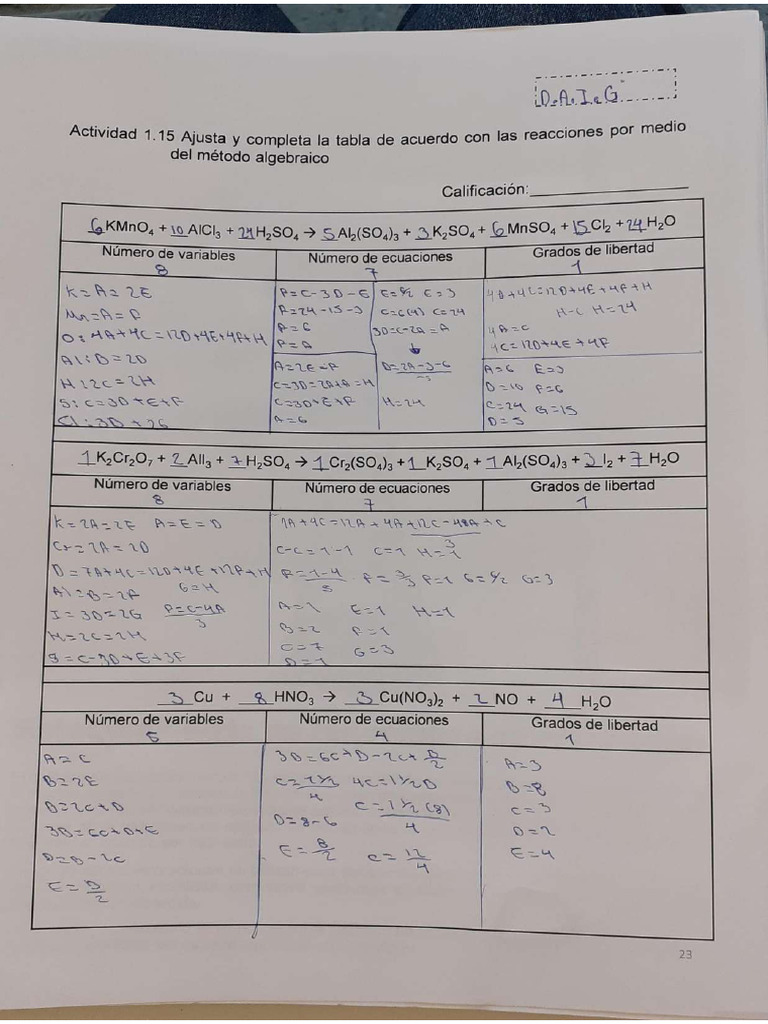 D.A.I.G
Actividad 1.15 Ajusta y completa la tabla de acuerdo con las reacciones por medio
del método algebraico
Calificación:
6 KMnO₄ + 10 AlCl₃ + 24 H₂SO₄ → 5 Al₂(SO₄)₃ + 3 K₂SO₄ + 6 MnSO₄ + 15 Cl₂ + 24 H₂O
Número de variables Número de ecuaciones Grados de libertad
8 7 1
K=A=2E
Mn=A=F
O:4A+4C=12D+4E+4F+H
Al:B=2D
H:2C=2H
S:C=3D+E+F
Cl:3D+2G
F=C-3D-E
F=24-15-3
F=6
F=A
E=6/2 E=3
C=6(4) C=24
3D=C-2A=A
A=2E=F
C=3D=2A+A=H
C=3D+E+F
A=6
H=24
4A+4C=12D+4E+4F+H
H-C H=24
4A=C
4C=12D+4E+4F
A=6 E=3
D=10 F=6
C=24 G=15
D=5
1 K₂Cr₂O₇ + 2 AlI₃ + 7 H₂SO₄ → 1 Cr₂(SO₄)₃ + 1 K₂SO₄ + 1 Al₂(SO₄)₃ + 3 I₂ + 7 H₂O
Número de variables Número de ecuaciones Grados de libertad
8 7 1
K=2A=2E A=E=D
Cr=2A=2D
O=7A+4C=12D+4E+12F+H
Al=B=2F G=H
I=3B=2G F=C-4A
3
H=2C=2H
S=C-3D+E+3F
7A+4C=12A+4A+12C-48A+C
3
C-C=1-1 C=1 H=1
F=3/3 F=1 G=6/2 G=3
A=1 E=1 H=1
B=2 F=1
C=7 G=3
D=1
3 Cu + 8 HNO₃ → 3 Cu(NO₃)₂ + 2 NO + 4 H₂O
Número de variables Número de ecuaciones Grados de libertad
5 4 1
A=C
B=2E
B=2C+D
3B=6C+D+E
D=B-2C
E=B/2
3B=6C+B-2C+B/2
4C=1 1/2B
4
C=1 1/2(8)
4
D=8-6
E=8/2 C=12/4
A=3
B=8
C=3
D=2
E=4
23